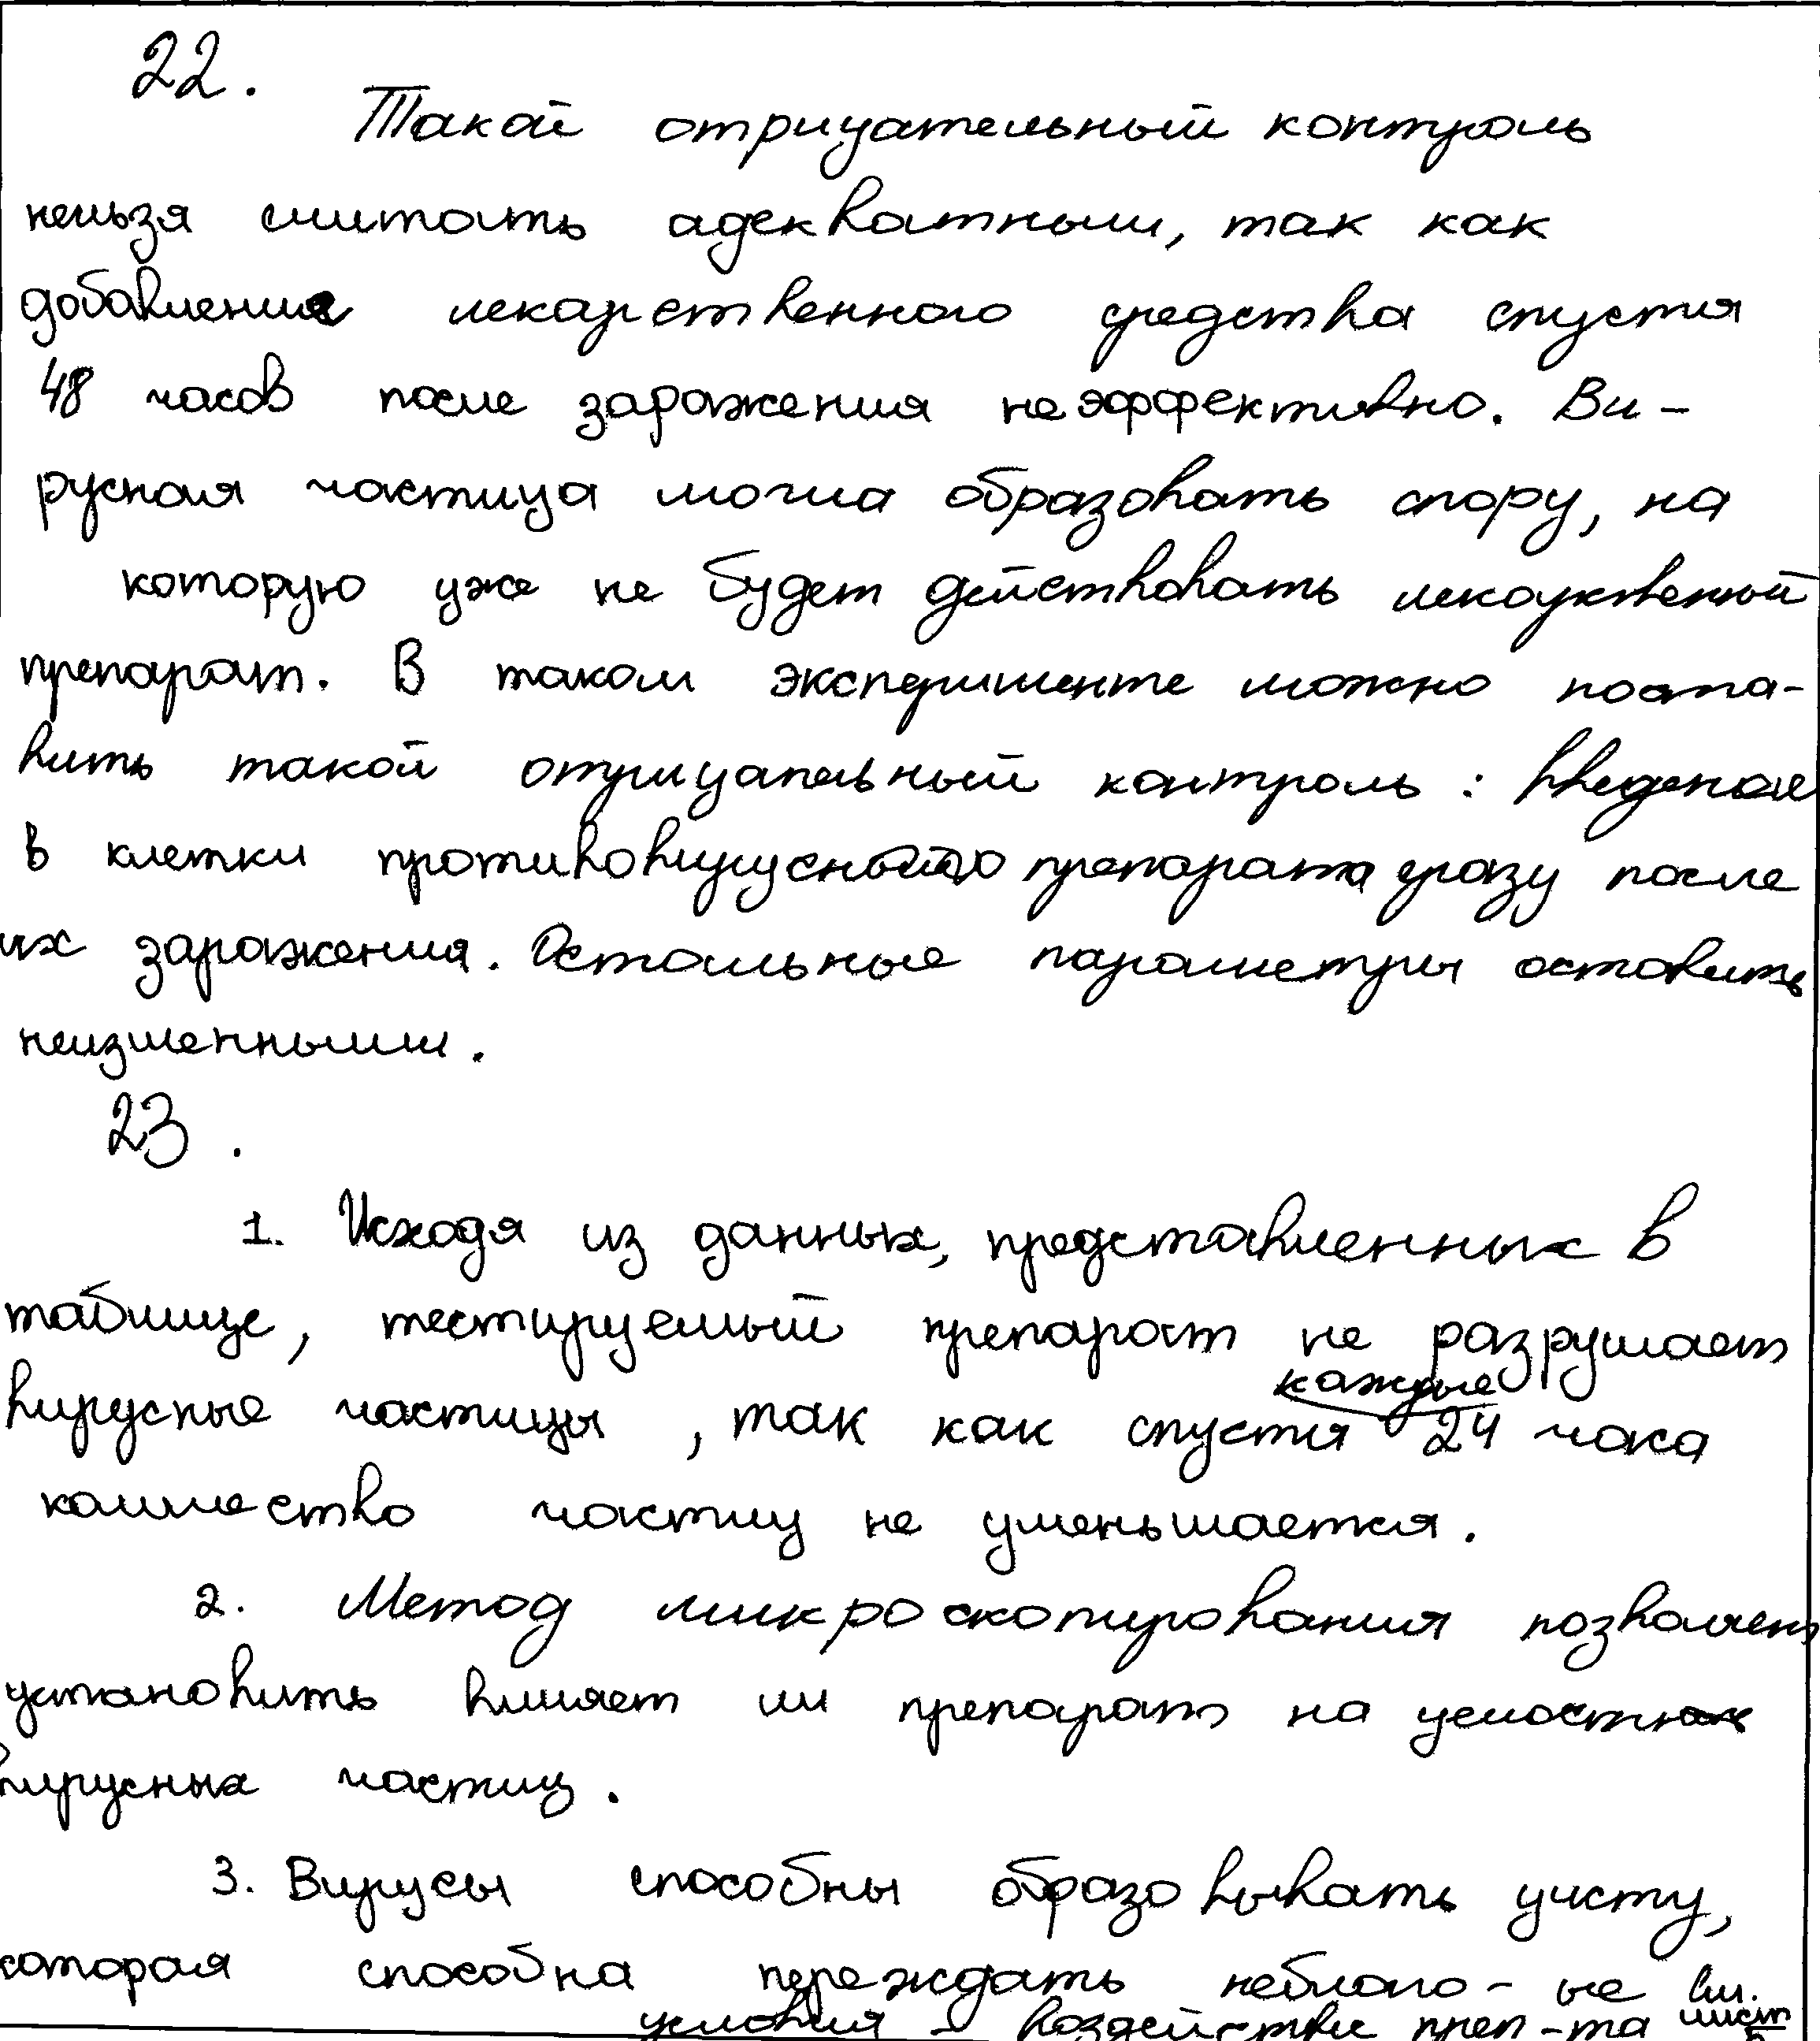 22.
Такой отрицательный контроль
нельзя считать адекватным, так как
добавление лекарственного средства спустя
48 часов после заражения неэффективно. Ви-
русная частица могла образовать спору, на
которую уже не будет действовать лекарственный
препарат. В таком эксперименте можно поста-
вить такой отрицательный контроль: введение
в клетки противовирусного препарата сразу после
их заражения. Остальные параметры оставить
неизменными.
23.
1. Исходя из данных, представленных в
таблице, тестируемый препарат не разрушает
каждые
вирусные частицы, так как спустя 24 часа
количество частиц не уменьшается.
2. Метод микроскопирования позволяет
установить влияет ли препарат на целостность
вирусных частиц.
3. Вирусы способны образовывать цисту,
которая способна переждать неблаго-ые см.
условия - воздействие преп-та лист